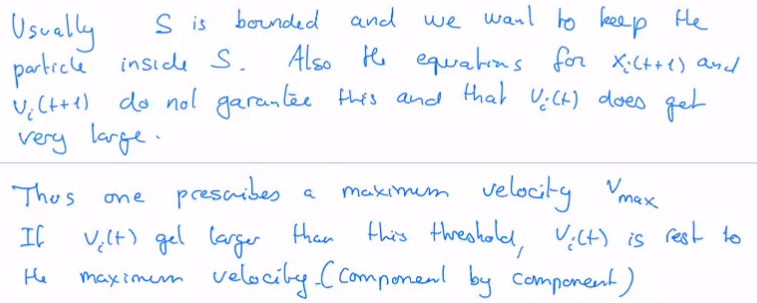 Usually S is bounded and we want to keep the
particle inside S. Also the equations for xᵢ(t+1) and
vᵢ(t+1) do not garantee this and that vᵢ(t) does get
very large.
Thus one prescribes a maximum velocity vmax
If vᵢ(t) get larger than this threshold, vᵢ(t) is rest to
the maximum velocity (component by component)